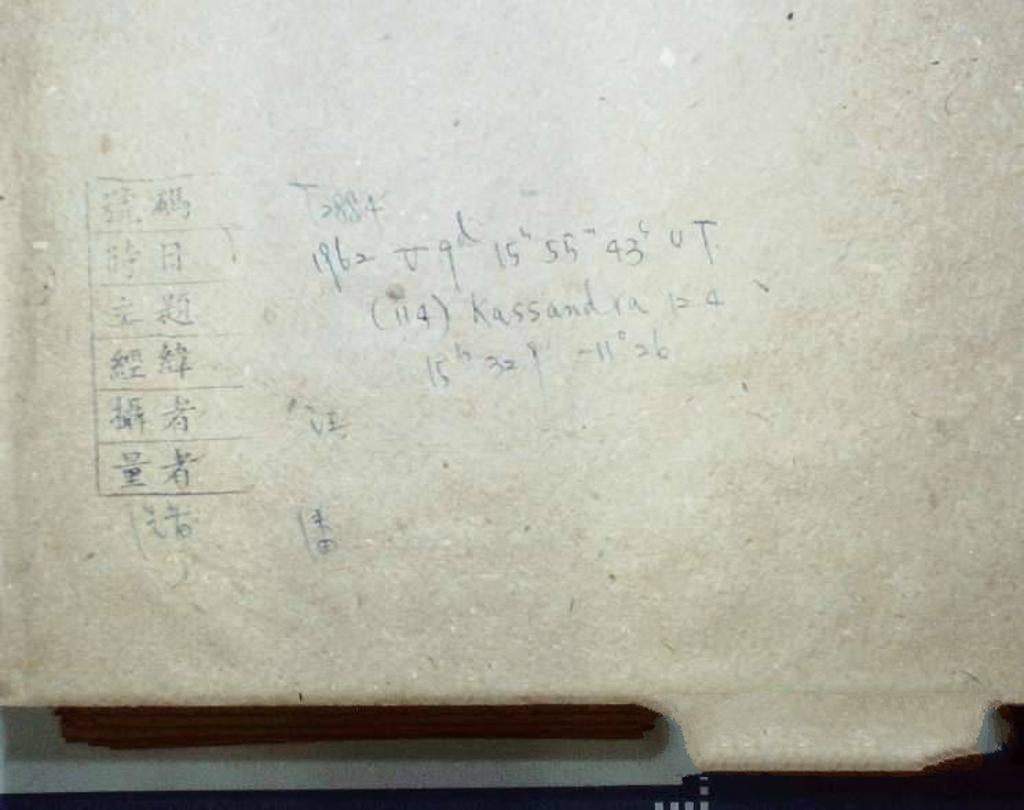 號碼 T2884
時日 1962 V 9d 15h 55m 43s UT
主題 (114) Kassandra 12.4
經緯 15h 32 9 -11° 26
攝者
量者
潘